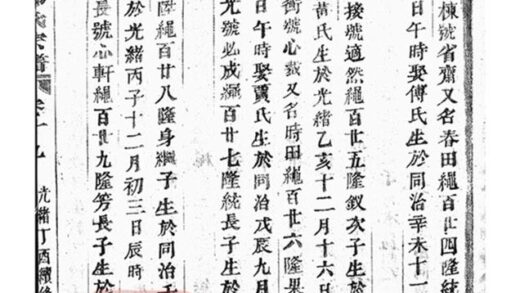 棟號省齋又名春田繩百廿四隆統
日午時娶傅氏生於同治辛未十一
接號適然繩百廿五隆釵次子生於
黃氏生於光緒乙亥十二月十六日
衡號心裁又名時田繩百廿六隆果
日午時娶賈氏生於同治戊辰九月
光號必成繩百廿七隆統長子生於
繩百廿八隆身繼子生於同治
於光緒丙子十二月初三日辰時
長號心軒繩百廿九隆簩長子生於
氏宗譜 卷十九 光緒丁酉續修